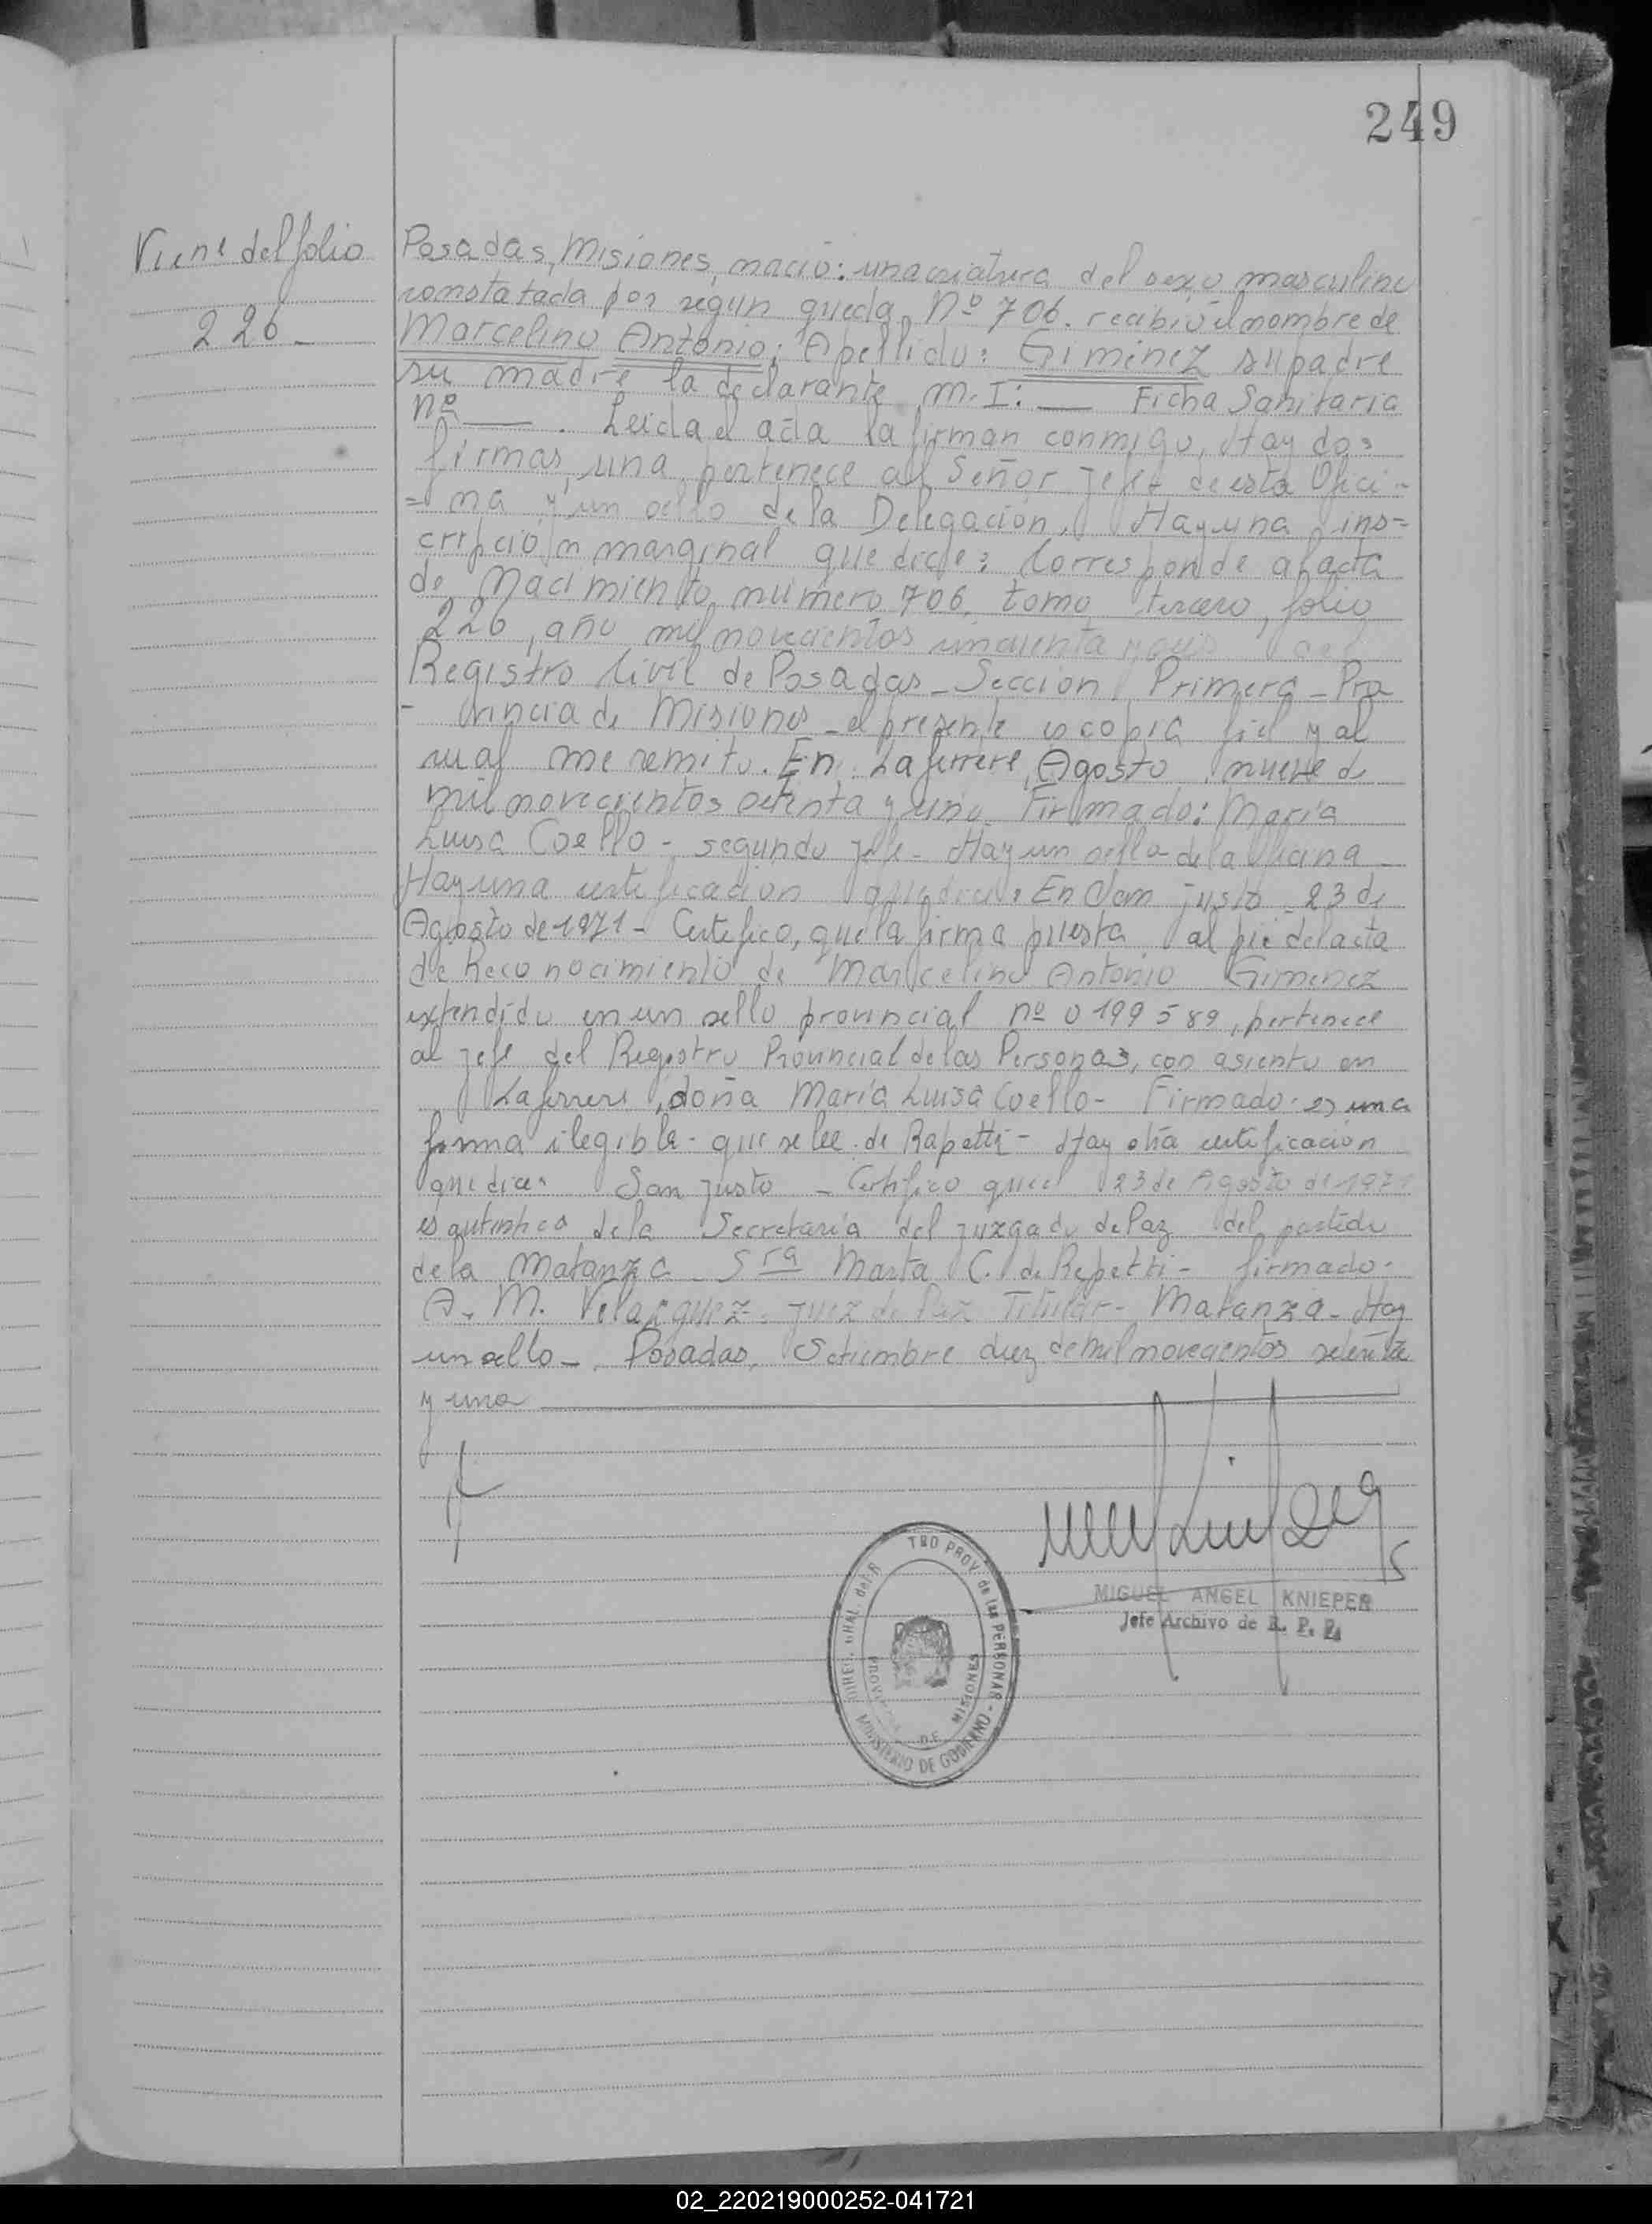 249
Viene del folio
226_
Posadas, Misiones, nació: una criatura del sexo masculino
constatada por segun queda Nº 706. recibió el nombre de
Marcelino Antonio; Apellido: Giménez su padre
su madre la declarante M.I: — Ficha Sanitaria
nº — . Leida el acta la firman conmigo, Hay dos
firmas, una pertenece al Señor Jefe de esta Ofici-
=na y un sello de la Delegación. Hay una ins=
cripción marginal que dice: Corresponde al acta
de Nacimiento número 706, tomo tercero, folio
226, año mil novecientos cincuenta y del
Registro Civil de Posadas - Sección Primera - Pro
- vincia de Misiones - el presente es copia fiel y al
cual me remito. En Laferrere, Agosto nueve de
mil novecientos setenta y uno. Firmado: María
Luisa Coello - segundo jefe - Hay un sello de la Oficina -
Hay una certificación que dice: En San Justo - 23 de
Agosto de 1971 - Certifico, que la firma puesta al pie del acta
de Reconocimiento de Marcelino Antonio Gimenez
extendido en un sello provincial nº 0199589, pertenece
al jefe del Registro Provincial de las Personas, con asiento en
Laferrere, doña María Luisa Coello - Firmado: es una
firma ilegible - que se lee de Rapetti - Hay otra certificación
que dice: San Justo - Certifico que el 23 de Agosto de 1971
es autentica de la Secretaria del juzgado de Paz del partido
de la Matanza - Sra Marta C. de Repetti - firmado -
A. M. Velazquez - Juez de Paz Titular - Matanza - Hay
un sello - . Posadas, Setiembre diez de mil novecientos setenta
y uno
MIGUEL ANGEL KNIEPER
Jefe Archivo de R. P. P.
TRO PROV. de las PERSONAS - MINISTERIO DE GOBIERNO
PROV DE MISIONES
02_220219000252-041721